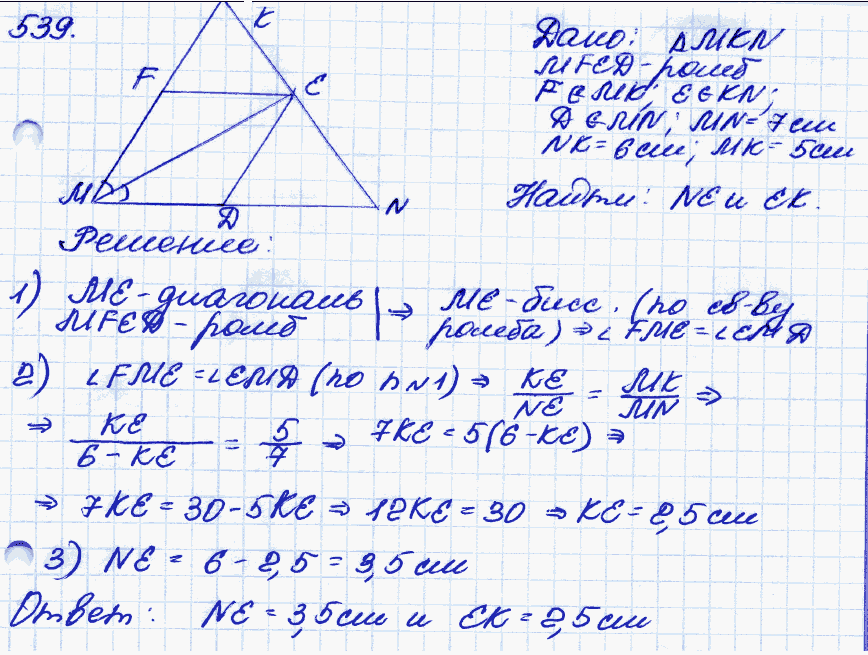 539.
K
F
E
M
D
N
Дано: ΔMKN
MFED - ромб
F∈MK; E∈KN;
D∈MN; MN = 7см
NK = 6см; MK = 5см
Найти: NE и EK.
Решение:
1) ME - диагональ | ⇒ ME - бисс. (по св-ву
MFED - ромб | ромба) ⇒ ∠FME = ∠EMD
2) ∠FME = ∠EMD (по п N1) ⇒ KE/NE = MK/MN ⇒
⇒ KE/(6 - KE) = 5/7 ⇒ 7KE = 5(6 - KE) ⇒
⇒ 7KE = 30 - 5KE ⇒ 12KE = 30 ⇒ KE = 2,5см
3) NE = 6 - 2,5 = 3,5см
Ответ: NE = 3,5см и EK = 2,5см